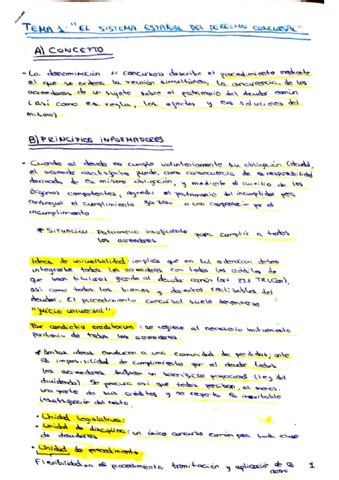 TEMA 1: "EL SISTEMA ESPAÑOL DEL DERECHO CONCURSAL"
A) CONCEPTO
- La denominación concurso describe el procedimiento mediante
el que se ordena la reunión simultánea, la concurrencia, de los
acreedores de un sujeto sobre el patrimonio del deudor común
(así como las reglas, los efectos y las soluciones del
mismo).
B) PRINCIPIOS INFORMADORES
- Cuando el deudor no cumple voluntariamente su obligación (deuda),
el acreedor insatisfecho puede, como consecuencia de la responsabilidad
derivada de esa misma obligación, y mediante el auxilio de los
órganos competentes, agredir el patrimonio del incumplidor para
conseguir el cumplimiento o una compensación por el
incumplimiento
* SITUACIÓN: Patrimonio insuficiente para cumplir a todos
los acreedores.
Idea de universalidad implica que en tal ordenación deben
integrarse todos los acreedores con todos los créditos de
que sean titulares frente al deudor común (art 251 TRLCon),
así como todos los bienes y derechos realizables del
deudor. El procedimiento concursal suele denominarse
"juicio universal"
Par condictio creditorum: se refiere al necesario tratamiento
paritario de todos los acreedores.
* Ambas ideas conducen a una comunidad de pérdidas; ante
la imposibilidad de cumplimiento por el deudor todos
los acreedores sufren un sacrificio proporcional (ley del
dividendo). Se procura así que todos perciban, al menos,
una parte de sus créditos y se reparta la inevitable
insatisfacción del resto.
- Unidad legislativa:
- Unidad de disciplina: un único concurso común para toda clase
de deudores
- Unidad de procedimiento
Flexibilidad en el procedimiento, tramitación y aplicación de la
1